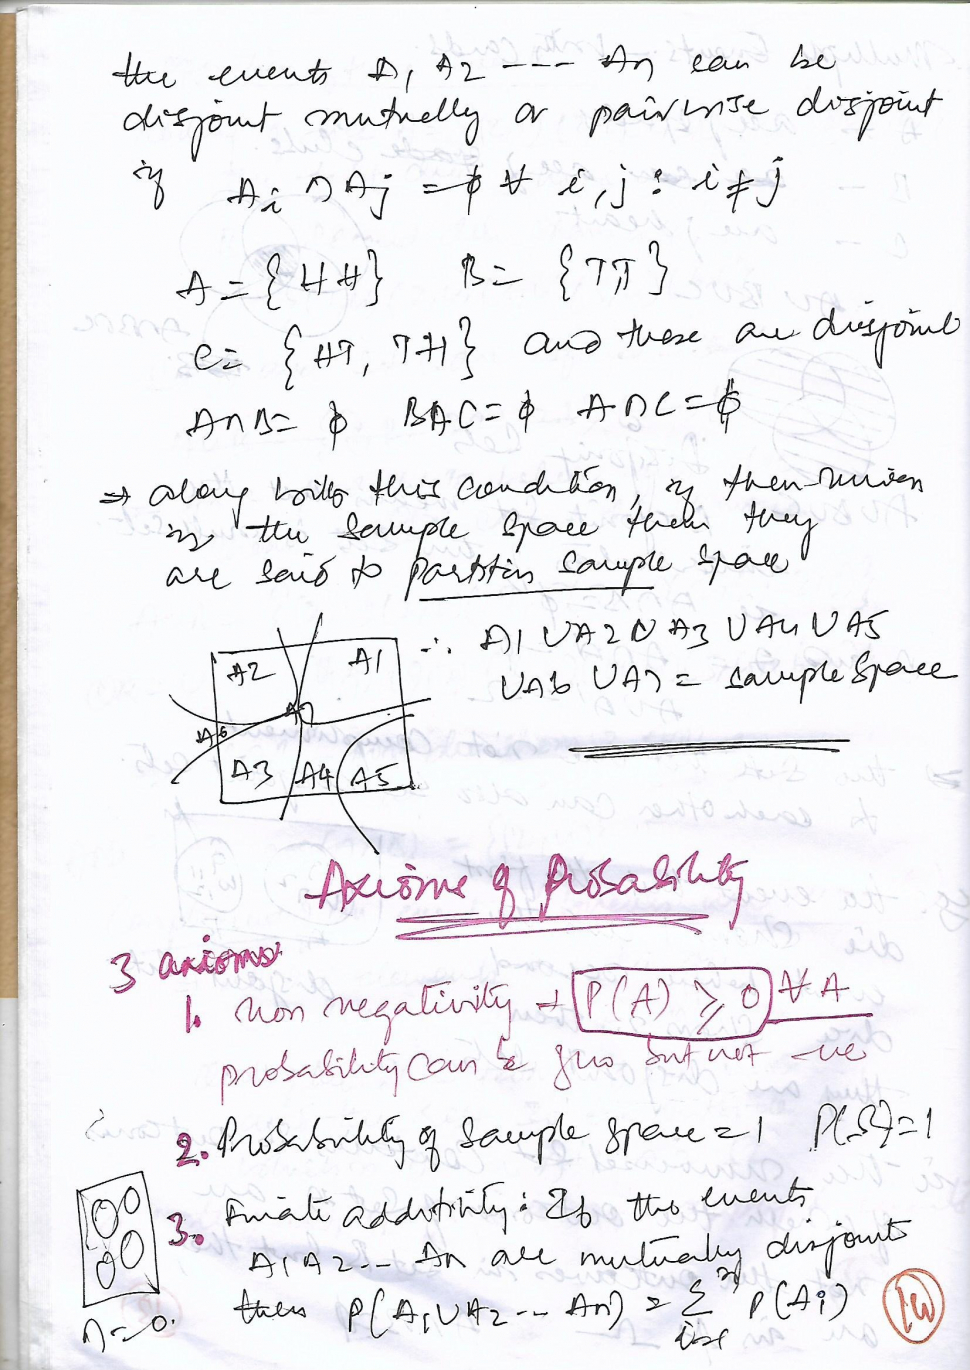 the events A1 A2 ---- An can be
disjoint mutually or pairwise disjoint
if Ai ∩ Aj = ϕ ∀ i,j : i ≠ j
A = {HH} B = {TT}
C = {HT, TH} and these are disjoint
A∩B = ϕ B∩C = ϕ A∩C = ϕ
⇒ along with this condition, if their union
is the sample space then they
are said to partition sample space
A2 A1
A7
A6
A3 A4 A5
∴ A1 ∪ A2 ∪ A3 ∪ A4 ∪ A5
∪ A6 ∪ A7 = sample space
Axioms of Probability
3 axioms
1. Non negativity → P(A) ≥ 0 ∀ A
probability can be zero but not -ve
2. Probability of sample space = 1 P(S) = 1
3. Finite additivity : If the events
A1 A2 -- An are mutually disjoints
then P(A1 ∪ A2 --- An) = Σ P(Ai)
∩ = 0.